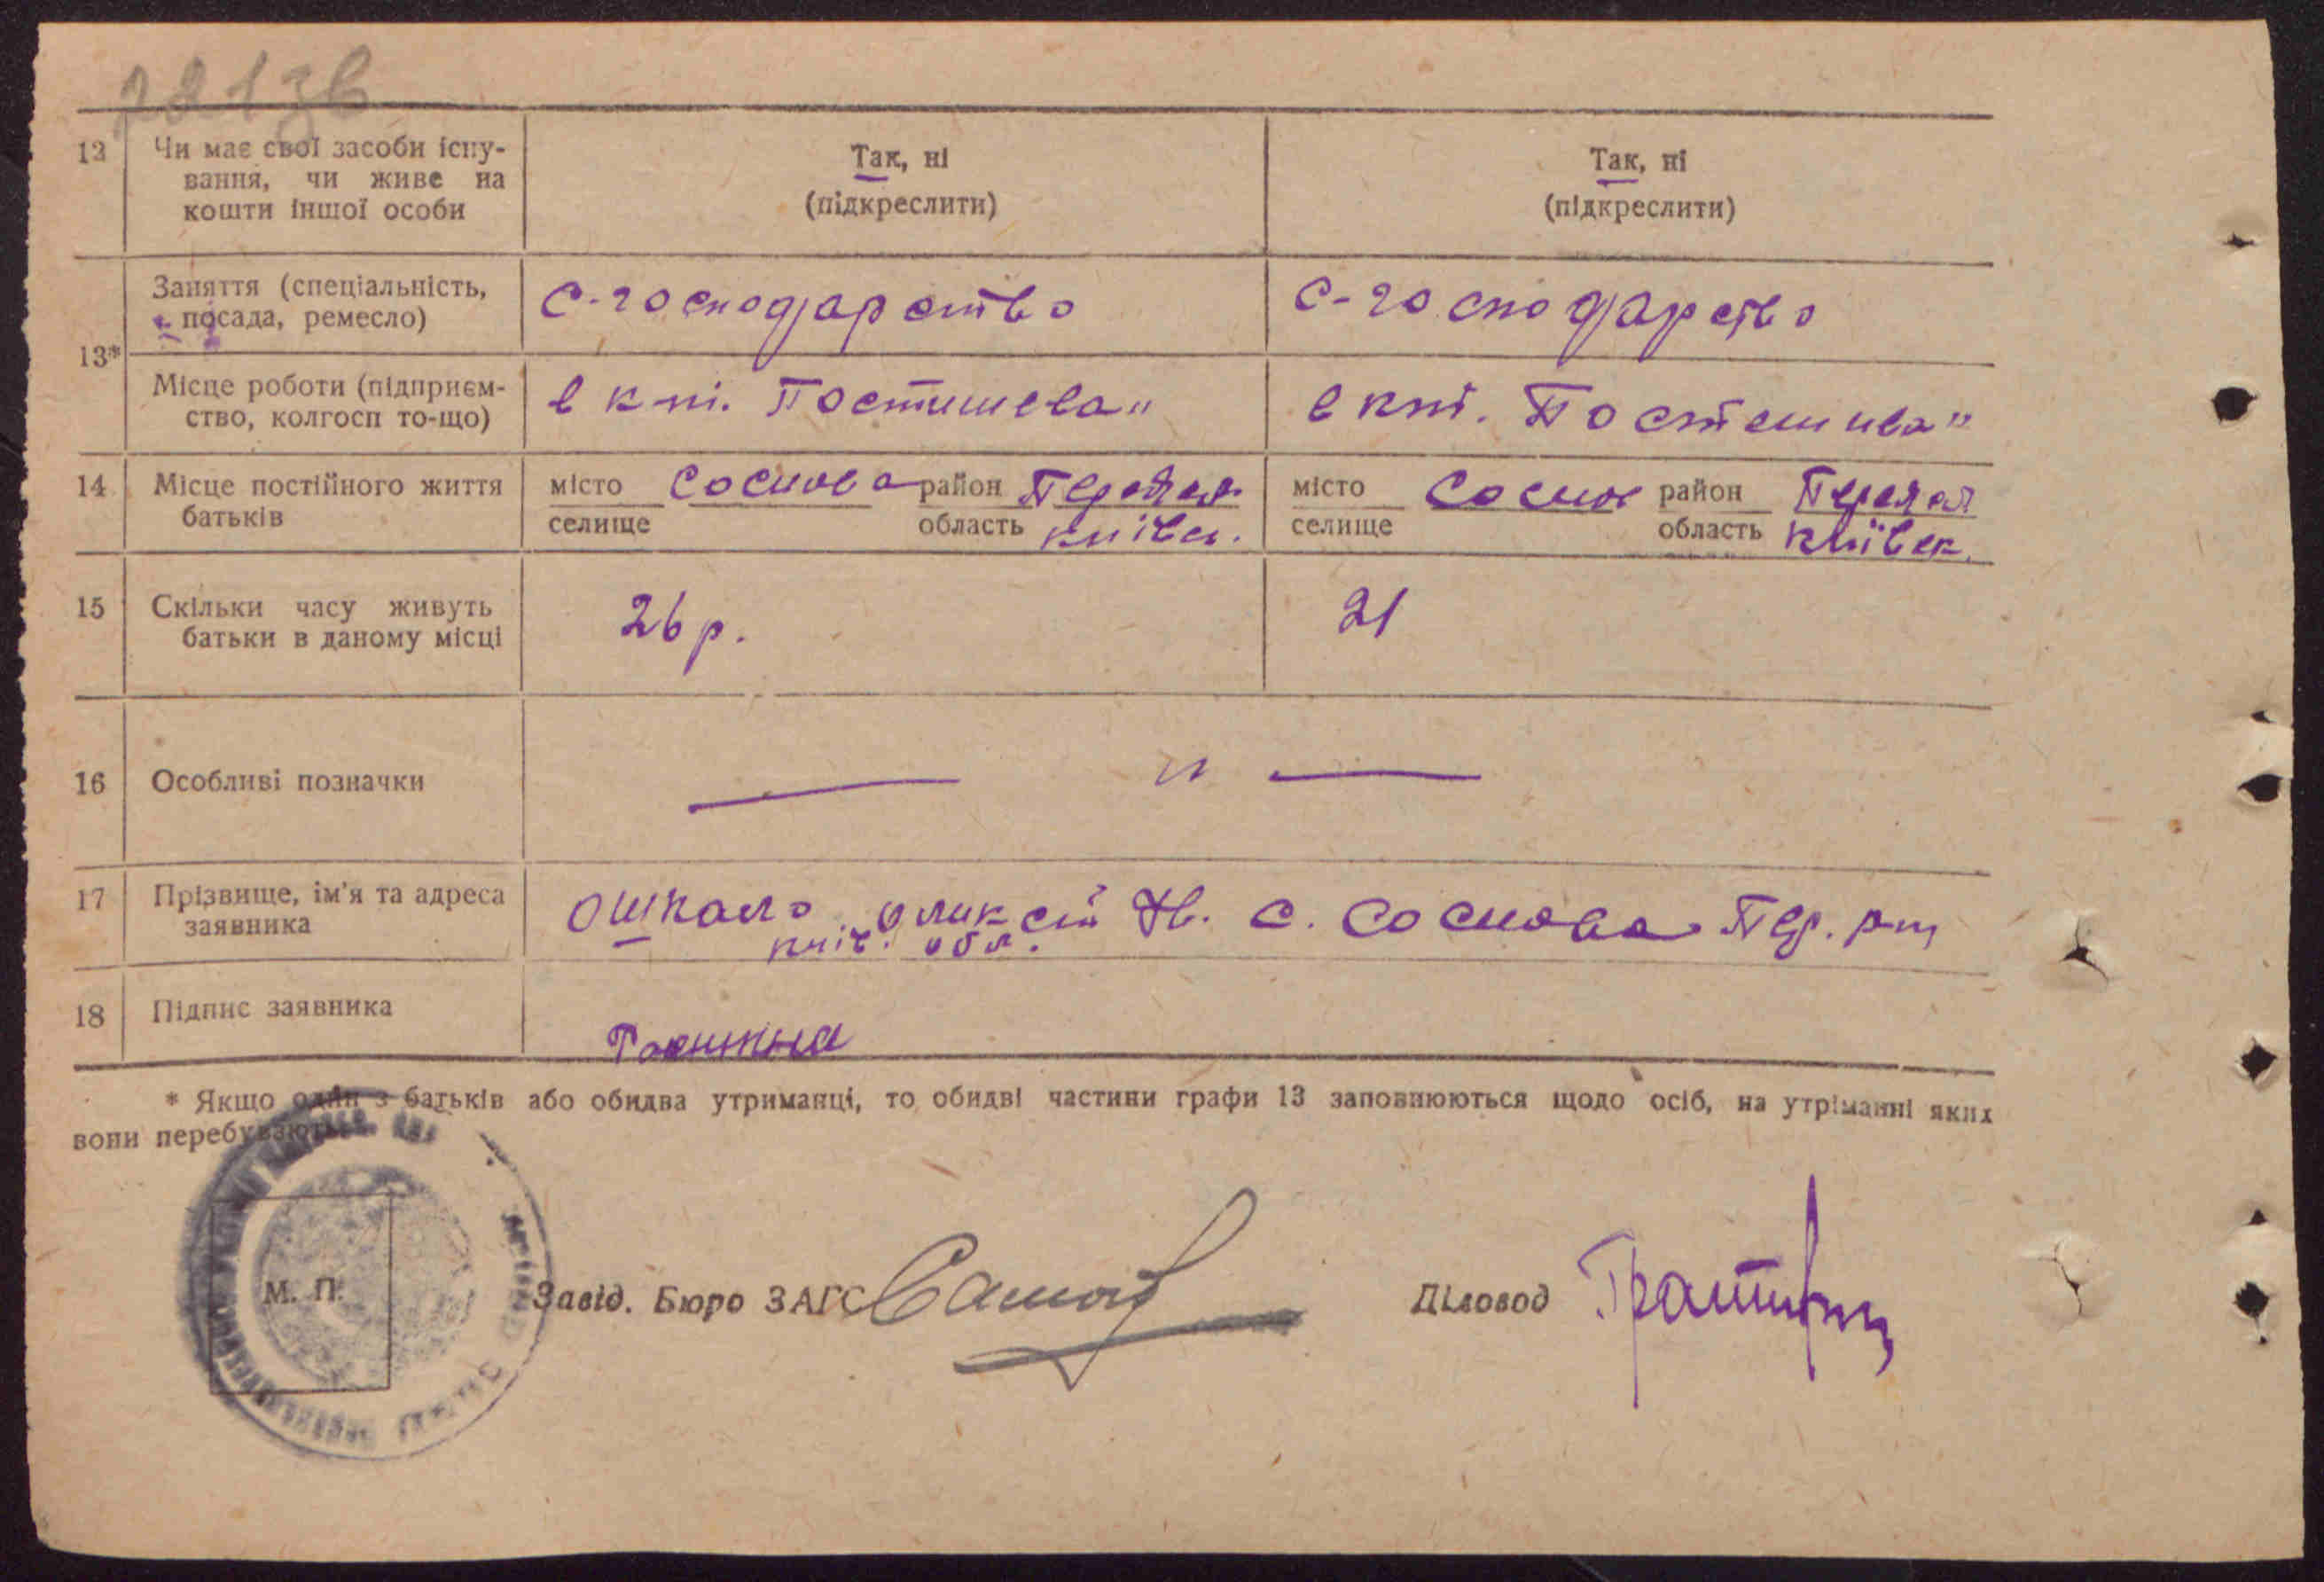 281зв
12 Чи має свої засоби існу-
вання, чи живе на
кошти іншої особи
Так, ні
(підкреслити)
Так, ні
(підкреслити)
13*
Заняття (спеціальність,
посада, ремесло)
с-господарство
с-господарство
Місце роботи (підприєм-
ство, колгосп то-що)
в кпі. Постишева"
в кпі. Постишева"
14 Місце постійного життя
батьків
місто Соснова район Переяс.
селище область Київськ.
місто Соснов район Переяс
селище область Київск.
15 Скільки часу живуть
батьки в даному місці
26 р.
21
16 Особливі позначки
— „ —
17 Прізвище, ім'я та адреса
заявника
Ошкало Олексій Ів. с. Соснова Пер. р-ну
Київ. обл.
18 Підпис заявника
* Якщо один з батьків або обидва утриманці, то обидві частини графи 13 заповнюються щодо осіб, на утріманні яких
вони перебувають.
М. П.
Завід. Бюро ЗАГС
Діловод